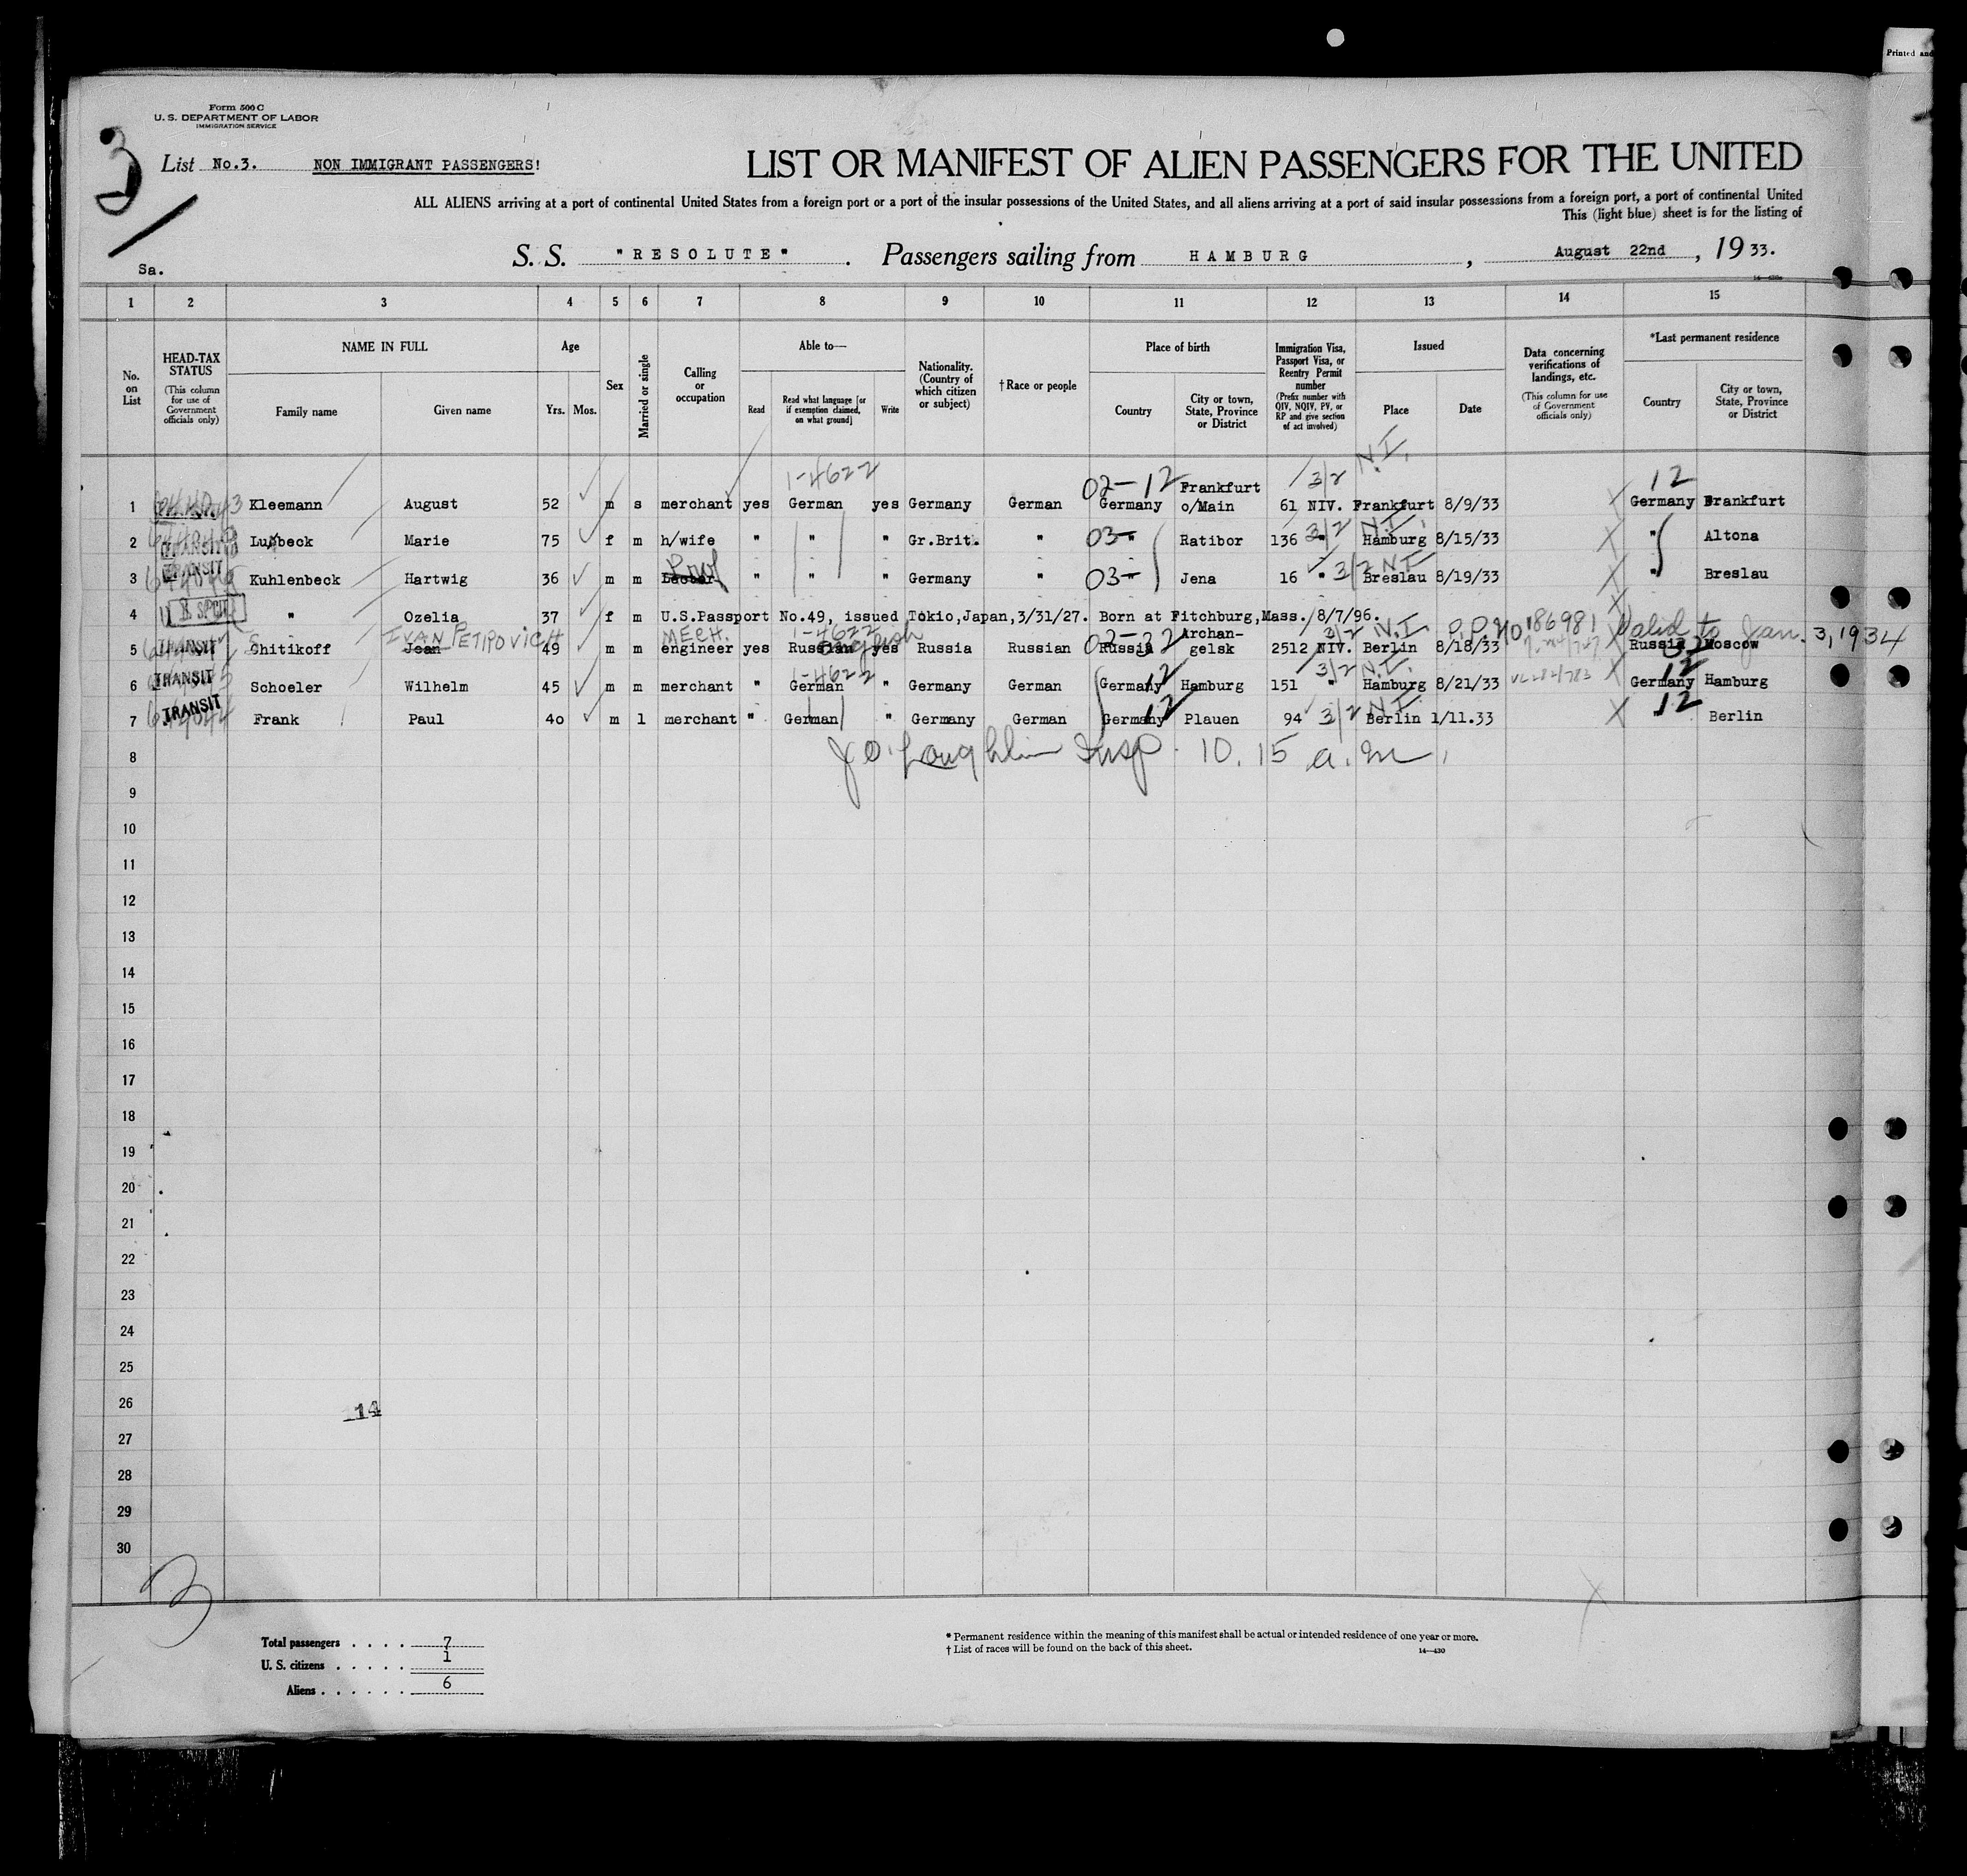 Printed and
Form 500 C
U. S. DEPARTMENT OF LABOR
IMMIGRATION SERVICE
3
List No.3. NON IMMIGRANT PASSENGERS!
LIST OR MANIFEST OF ALIEN PASSENGERS FOR THE UNITED
ALL ALIENS arriving at a port of continental United States from a foreign port or a port of the insular possessions of the United States, and all aliens arriving at a port of said insular possessions from a foreign port, a port of continental United
This (light blue) sheet is for the listing of
Sa.
S. S. "RESOLUTE". Passengers sailing from HAMBURG, August 22nd, 1933.
1 2 3 4 5 6 7 8 9 10 11 12 13 14 15
No. on List
HEAD-TAX STATUS (This column for use of Government officials only)
NAME IN FULL Family name Given name
Age Yrs. Mos.
Sex
Married or single
Calling or occupation
Able to— Read Read what language [or if exemption claimed, on what ground] Write
Nationality. (Country of which citizen or subject)
† Race or people
Place of birth Country City or town, State, Province or District
Immigration Visa, Passport Visa, or Reentry Permit number (Prefix number with QIV, NQIV, PV, or RP and give section of act involved)
Issued Place Date
Data concerning verifications of landings, etc. (This column for use of Government officials only)
*Last permanent residence Country City or town, State, Province or District
1-4622 02-12 3/2 N.I. 12
1 Kleemann August 52 m s merchant yes German yes Germany German Germany Frankfurt o/Main 61 NIV. Frankfurt 8/9/33 Germany Frankfurt
2 TRANSIT Lubbeck Marie 75 f m h/wife " " " Gr.Brit. " 03- " Ratibor 136 3/2 " N.I. Hamburg 8/15/33 " Altona
3 TRANSIT Kuhlenbeck Hartwig 36 m m Prof " " " Germany " 03- " Jena 16 " 3/2 N.I Breslau 8/19/33 Breslau
4 " Ozelia 37 f m U.S.Passport No.49, issued Tokio,Japan,3/31/27. Born at Fitchburg,Mass. 8/7/96.
IVAN PETIPOVICH MECH. 1-4622 English 02-32 3/2 N.I. P.P. No 186981 Valid to Jan. 3, 1934
5 TRANSIT Chitikoff Jean 49 m m engineer yes Russian yes Russia Russian Russia Archan-gelsk 2512 NIV. Berlin 8/18/33 Russia Moscow
1-4622 3/2 N.I.
6 TRANSIT Schoeler Wilhelm 45 m m merchant " German " Germany German Germany 12 Hamburg 151 " Hamburg 8/21/33 Germany 12 Hamburg
7 TRANSIT Frank Paul 4o m l merchant " German " Germany German Germany 12 Plauen 94 3/2 N.I. Berlin 1/11.33 " 12 Berlin
J O'Loughlin Insp. 10.15 a.m.
8
9
10
11
12
13
14
15
16
17
18
19
20
21
22
23
24
25
26
14
27
28
29
30
3
Total passengers . . . . 7
U. S. citizens . . . . . 1
Aliens . . . . . . 6
* Permanent residence within the meaning of this manifest shall be actual or intended residence of one year or more.
† List of races will be found on the back of this sheet.
14—430